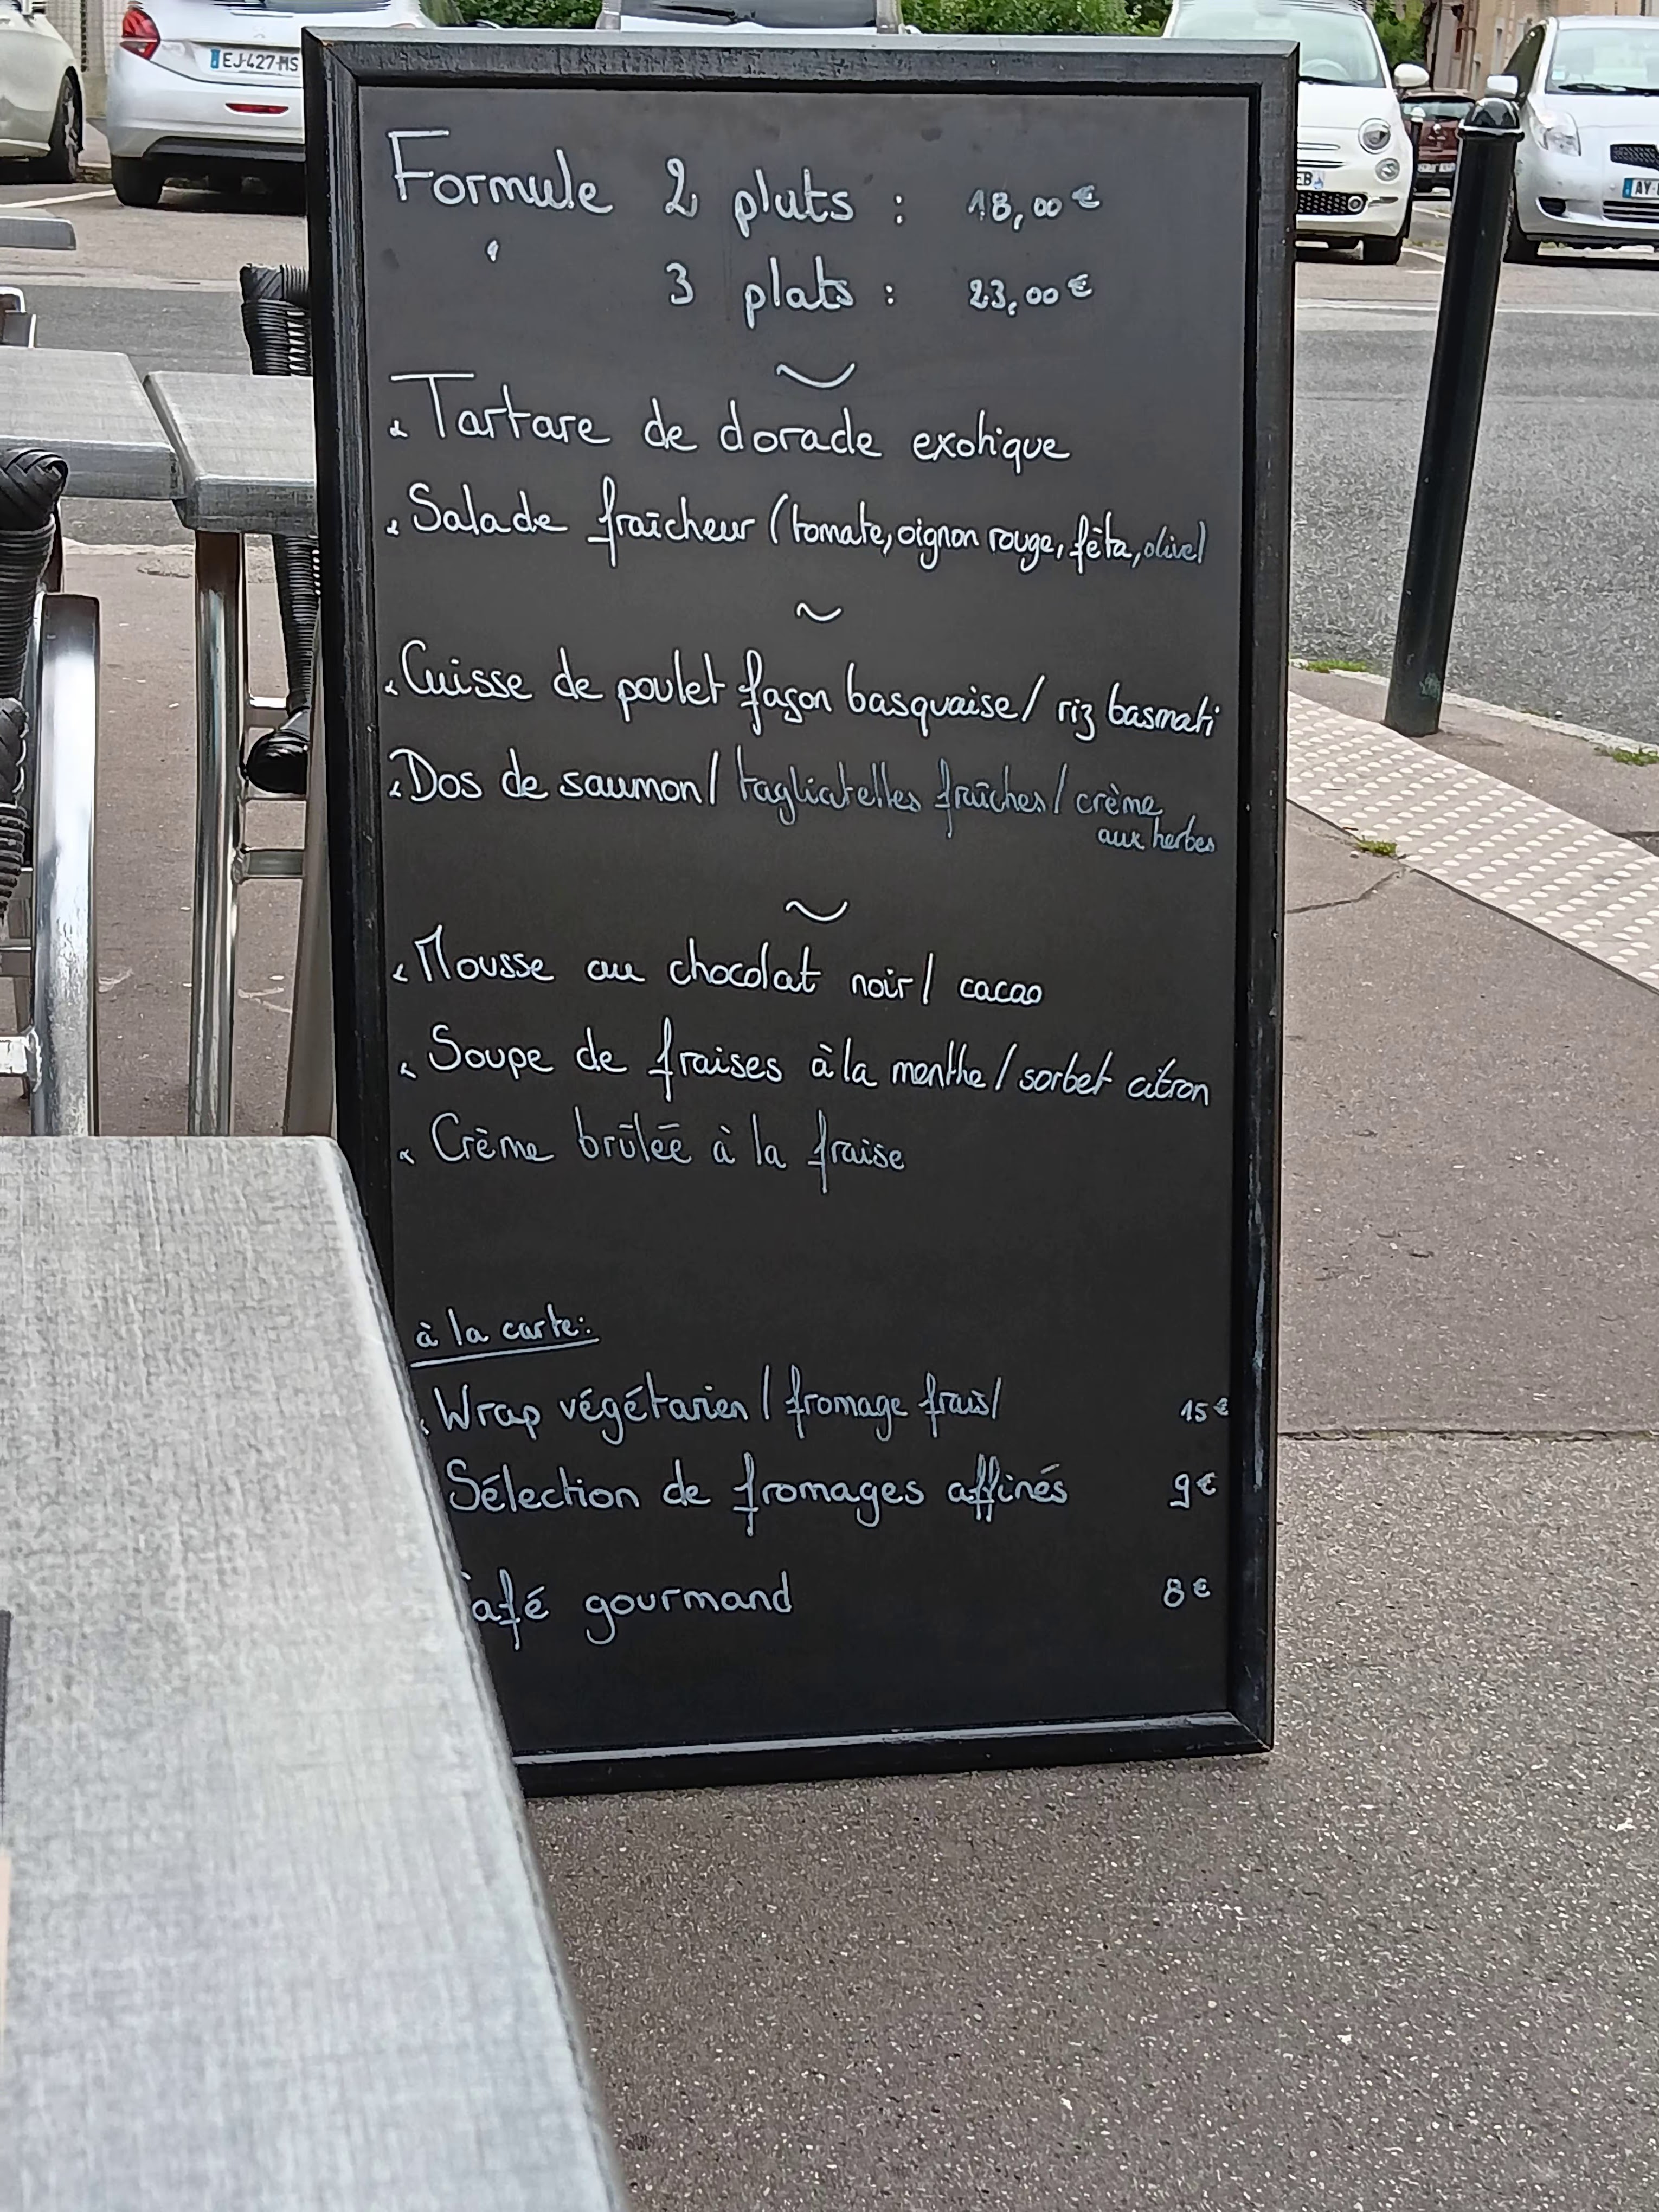 Formule 2 plats : 18,00€
3 plats : 23,00€
Tartare de dorade exotique
Salade fraîcheur (tomate, oignon rouge, fêta, olive)
Cuisse de poulet façon basquaise/ riz basmati
Dos de saumon/ tagliatelles fraîches/ crème
aux herbes
Mousse au chocolat noir/ cacao
Soupe de fraises à la menthe/ sorbet citron
Crème brûlée à la fraise
à la carte:
Wrap végétarien / fromage frais/ 15€
Sélection de fromages affinés 9€
afé gourmand 8€
EJ-427-MS
AY
EB